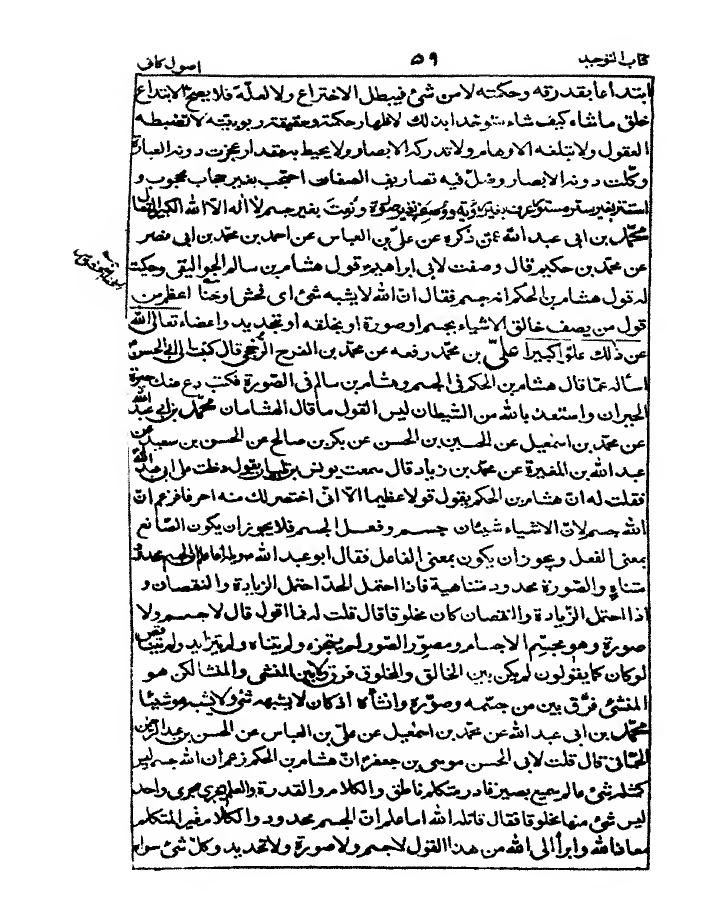 كتاب التوحيد
۵۹
اصول كافى
ابتداعا بقدرته وحكمته لا من شئ فيبطل الاختراع ولا لعلّة فلا يصحّ الابتداع
خلق ما شاء كيف شاء متوحدا بذلك لاظهار حكمته وحقيقة ربوبيته لا تضبطه
العقول ولا تبلغه الاوهام ولا تدركه الابصار ولا يحيط به مقدار عجزت دونه العبارة
وكلّت دونه الابصار وضلّ فيه تصاريف الصفات احتجب بغير حجاب محجوب و
استتر بغير ستر مستور عرف بغير رؤية ووصف بغير صورة ونعت بغير جسم لا اله الا الله الكبير المتعال
محمّد بن ابى عبد الله عمّن ذكره عن علىّ بن العباس عن احمد بن محمّد بن ابى نصر
عن محمّد بن حكيم قال وصفت لابى ابراهيم ع قول هشام بن سالم الجواليقى وحكيت
له قول هشام بن الحكم انه جسم فقال انّ الله لا يشبهه شئ اى فحش او خنا اعظم من
قول من يصف خالق الاشياء بجسم او صورة او بخلقه او تحديد واعضاء تعالى الله
عن ذلك علوّا كبيرا علىّ بن محمّد رفعه عن محمّد بن الفرج الرّخجى قال كتبت الى ابى الحسن ع
اسأله عمّا قال هشام بن الحكم فى الجسم وهشام بن سالم فى الصّورة فكتب دع عنك حيرة
الحيران واستعذ بالله من الشيطان ليس القول ما قال الهشامان محمّد بن ابى عبد الله
عن محمّد بن اسمعيل عن الحسين بن الحسن عن بكر بن صالح عن الحسن بن سعيد عن
عبد الله بن المغيرة عن محمّد بن زياد قال سمعت يونس بن ظبيان يقول دخلت على ابى عبد الله ع
فقلت له انّ هشام بن الحكم يقول قولا عظيما الّا انّى اختصر لك منه احرفا فزعم انّ
الله جسم لانّ الاشياء شيئان جسم وفعل الجسم فلا يجوز ان يكون الصّانع
بمعنى الفعل ويجوز ان يكون بمعنى الفاعل فقال ابو عبد الله ع ويحه اما علم انّ الجسم محدود
متناه والصّورة محدودة متناهية فاذا احتمل الحدّ احتمل الزيادة والنقصان و
اذا احتمل الزّيادة والنقصان كان مخلوقا قال قلت له فما اقول قال لا جسم ولا
صورة وهو مجسّم الاجسام ومصوّر الصّور لم يتجزء ولم يتناه ولم يتزايد ولم يتناقص
لو كان كما يقولون لم يكن بين الخالق والمخلوق فرق ولا بين المنشئ والمنشا لكن هو
المنشئ فرّق بين من جسّمه وصوّره وانشأه اذ كان لا يشبهه شئ ولا يشبه هو شيئا
محمّد بن ابى عبد الله عن محمّد بن اسمعيل عن علىّ بن العباس عن الحسن بن عبد الرحمن
الحمّانى قال قلت لابى الحسن موسى بن جعفر ع انّ هشام بن الحكم زعم ان الله جسم ليس
كمثله شئ عالم سميع بصير قادر متكلم ناطق والكلام والقدرة والعلم يجرى مجرى واحد
ليس شئ منها مخلوقا فقال قاتله الله اما علم انّ الجسم محدود والكلام غير المتكلم
معاذ الله وابرأ الى الله من هذا القول لا جسم ولا صورة ولا تحديد وكلّ شئ سواه